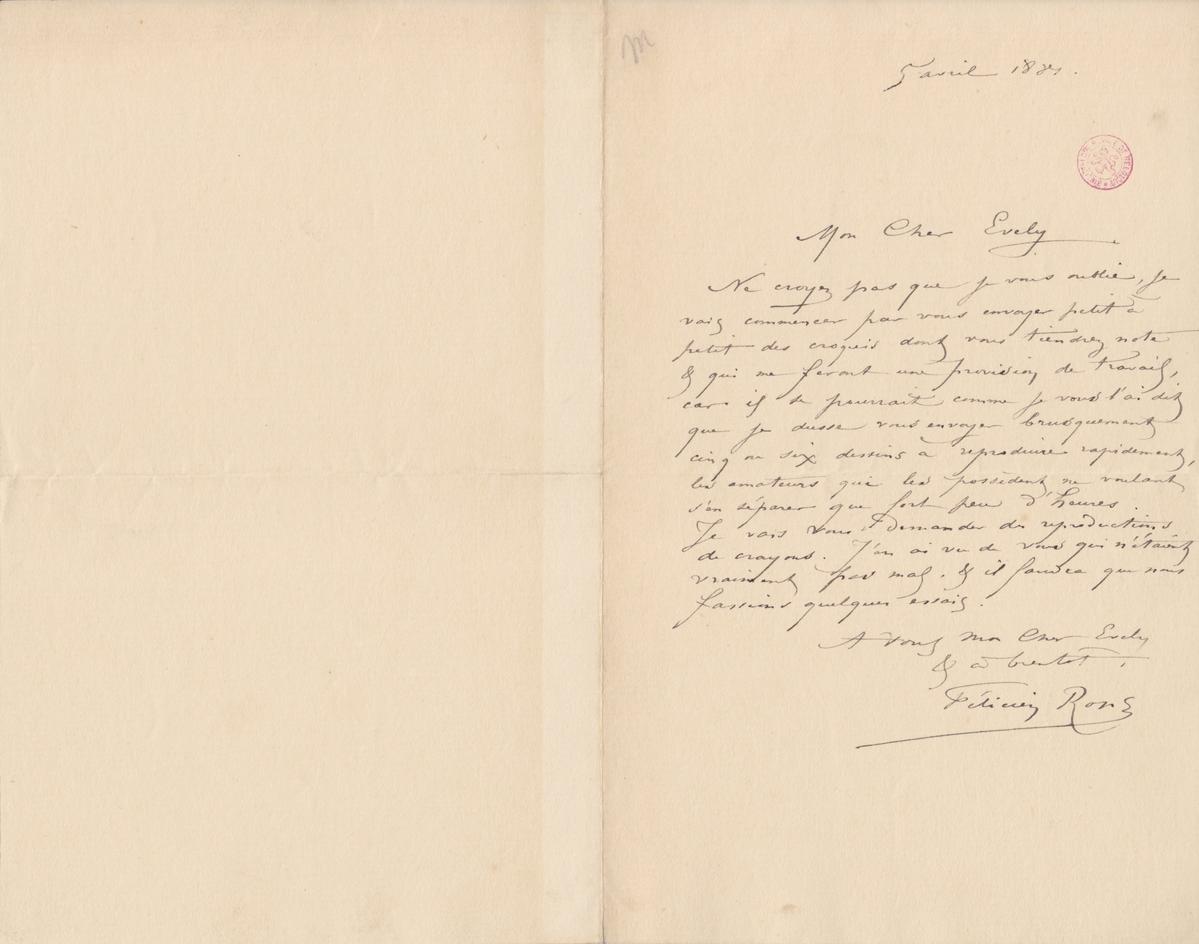 5 avril 188
Mon Cher Evely
Ne croyez pas que je vous oublie, je
vais commencer par vous envoyer petit à
petit des croquis dont vous tiendrez note
& qui me feront une provision de travail,
car il se pourrait comme je vous l'ai dit
que je dusse vous envoyer brusquement
cinq ou six dessins à reproduire rapidement,
les amateurs qui les possèdent ne voulant
s'en séparer que fort peu d'heures.
Je vais vous demander des reproductions
de crayons. J'en ai vu de vous qui n'étaient
vraiment pas mal. & il faudra que nous
fassions quelques essais.
A vous mon Cher Evely
& à bientot.
Félicien Rops